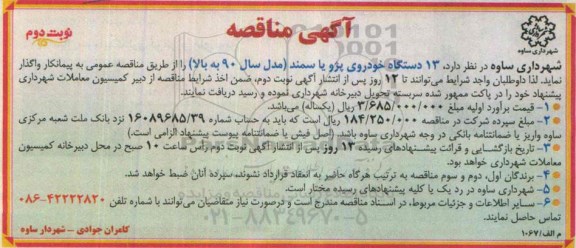 آگهی مناقصه
نوبت دوم
شهرداری ساوه
شهرداری ساوه در نظر دارد، ۱۳ دستگاه خودروی پژو یا سمند (مدل سال ۹۰ به بالا) را از طریق مناقصه عمومی به پیمانکار واگذار
نماید. لذا داوطلبان واجد شرایط می‌توانند تا ۱۲ روز پس از انتشار آگهی نوبت دوم، ضمن اخذ شرایط مناقصه از دبیر کمیسیون معاملات شهرداری
پیشنهاد خود را در پاکت ممهور شده سربسته تحویل دبیرخانه شهرداری نموده و رسید دریافت نمایند.
۱- قیمت برآورد اولیه مبلغ ۳/۶۸۵/۰۰۰/۰۰۰ ریال (یکساله) می‌باشد.
۲- مبلغ سپرده شرکت در مناقصه ۱۸۴/۲۵۰/۰۰۰ ریال است که باید به حساب شماره ۱۶۰۸۹۶۸۵/۳۹ نزد بانک ملت شعبه مرکزی
ساوه واریز یا ضمانتنامه بانکی در وجه شهرداری ساوه باشد. (اصل فیش یا ضمانتنامه پیوست پیشنهاد الزامی است.)
۳- تاریخ بازگشایی و قرائت پیشنهادهای رسیده ۱۳ روز پس از انتشار آگهی نوبت دوم رأس ساعت ۱۰ صبح در محل دبیرخانه کمیسیون
معاملات شهرداری خواهد بود.
۴- برندگان اول، دوم و سوم مناقصه به ترتیب هرگاه حاضر به انعقاد قرارداد نشوند سپرده آنان ضبط خواهد شد.
۵- شهرداری ساوه در رد یک یا کلیه پیشنهادهای رسیده مختار است.
۶- سایر اطلاعات و جزئیات مربوط، در اسناد مناقصه مندرج است و درصورت نیاز متقاضیان می‌توانند با شماره تلفن ۴۲۲۲۲۸۲۰-۰۸۶
تماس حاصل نمایند.
کامران جوادی – شهردار ساوه
م الف/۱۰۶۷
۰۲۱-۸۸۳۴۹۶۷۰-۵